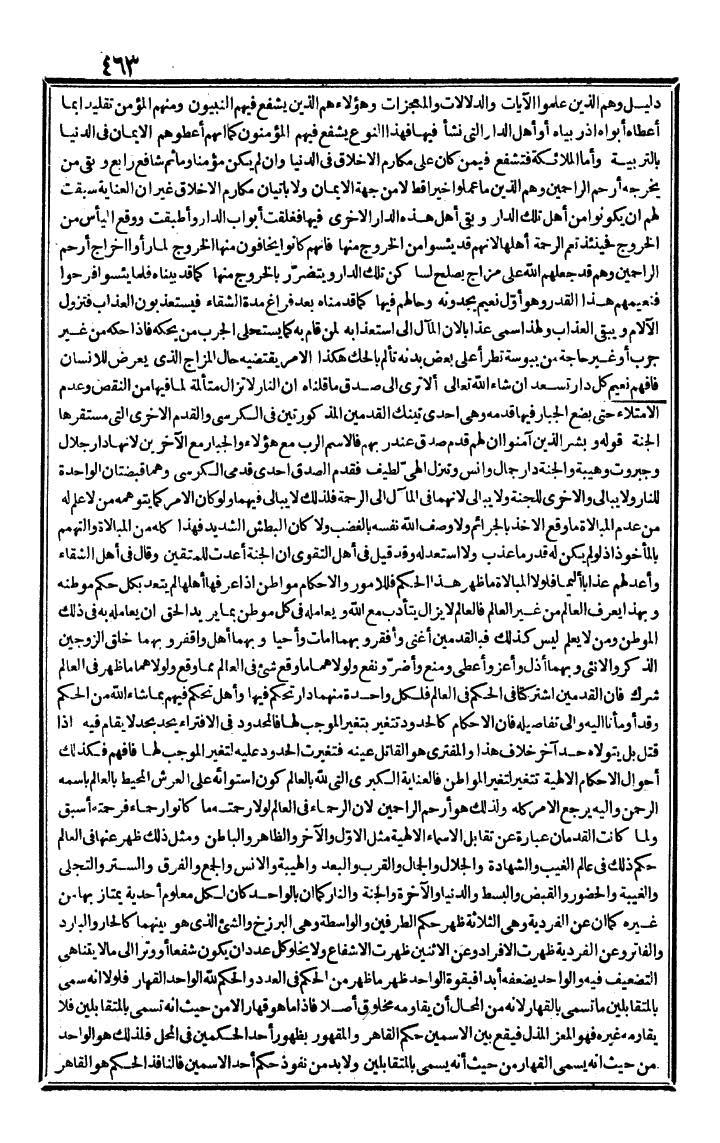 ٤٦٣
دليل وهم الذين علموا الآيات والدلالات والمعجزات وهؤلاء هم الذين يشفع فيهم النبيون ومنهم المؤمن تقليد ابما
أعطاه أبواه اذر بياه أو أهل الدار التى نشأ فيها فهذا النوع يشفع فيهم المؤمنون كما انهم أعطوهم الايمان فى الدنيا
بالتربية وأما الملائكة فتشفع فيمن كان على مكارم الاخلاق فى الدنيا وان لم يكن مؤمنا وماثم شافع رابع و بقى من
يخرجه أرحم الراحمين وهم الذين ما عملوا خيرا قط لا من جهة الايمان ولا باتيان مكارم الاخلاق غير ان العناية سبقت
لهم ان يكونوا من أهل تلك الدار و بقى أهل هذه الدار الاخرى فيها فغلقت أبواب الدار وأطبقت ووقع اليأس من
الخروج فحينئذ تعم الرحمة أهلها لانهم قد يئسوا من الخروج منها فانهم كانوا يخافون منها الخروج لما رأوا اخراج أرحم
الراحمين وهم قد جعلهم الله على مزاج يصلح لسا كن تلك الدار و يتضرّر بالخروج منها كما قد بيناه فلما يئسوا فرحوا
فنعيمهم هذا القدر وهو أوّل نعيم يجدونه وحالهم فيها كما قدمناه بعد فراغ مدة الشقاء فيستعذبون العذاب فتزول
الآلام و يبقى العذاب ولهذا سمى عذابا لان المآل الى استعذابه لمن قام به كما يستحلى الجرب من يحكه فاذا حكه من غير
جرب أو غير حاجة من يبوسة تطرأ على بعض بدنه تألم بالحك هكذا الامر يقتضيه حال المزاج الذى يعرض للانسان
فافهم نعيم كل دار تسعد ان شاء الله تعالى ألا ترى الى صدق ما قلناه ان النار لا تزال متألمة لما فيها من النقص وعدم
الامتلاء حتى يضع الجبار فيها قدمه وهى احدى تينك القدمين المذكورتين فى الكرسى والقدم الاخرى التى مستقرها
الجنة قوله و بشر الذين آمنوا ان لهم قدم صدق عند ربهم فالاسم الرب مع هؤلاء والجبار مع الآخرين لانها دار جلال
وجبروت وهيبة والجنة دار جمال وانس وتنزل الهىّ لطيف فقدم الصدق احدى قدمى الكرسى وهما قبضتان الواحدة
للنار ولا يبالى والاخرى للجنة ولا يبالى لانهما فى المآل الى الرحمة فلذلك لا يبالى فيهما ولو كان الامر كما يتوهمه من لا علم له
من عدم المبالاة ما وقع الاخذ بالجرائم ولا وصف الله نفسه بالغضب ولا كان البطش الشديد فهذا كله من المبالاة والتهمم
بالمأخوذ اذ لو لم يكن له قدر ما عذب ولا استعد له وقد قيل فى أهل التقوى ان الجنة أعدت للمتقين وقال فى أهل الشقاء
وأعد لهم عذابا أليما فلولا المبالاة ما ظهر هذا الحكم فللامور والاحكام مواطن اذا عرفها أهلها لم يتعد بكل حكم موطنه
و بهذا يعرف العالم من غير العالم فالعالم لا يزال يتأدب مع الله و يعامله فى كل موطن بما يريد الحق ان يعامله به فى ذلك
الموطن ومن لا يعلم ليس كذلك فبالقدمين أغنى وأفقر و بهما امات وأحيا و بهما أهل وأقفر و بهما خلق الزوجين
الذكر والانثى و بهما أذل وأعز وأعطى ومنع وأضرّ ونفع ولولا هما ما وقع شئ فى العالم مما وقع ولولا هما ما ظهر فى العالم
شرك فان القدمين اشتركتا فى الحكم فى العالم فلكل واحدة منهما دار تحكم فيها وأهل تحكم فيهم بما شاء الله من الحكم
وقد أومأنا اليه والى تفاصيله فان الاحكام كالحدود تتغير بتغير الموجب لها فالمحدود فى الافتراء يحد بحد لا يقام فيه اذا
قتل بل يتولاه حد آخر خلاف هذا والمفترى هو القاتل عينه فتغيرت الحدود عليه لتغير الموجب لها فافهم فكذلك
أحوال الاحكام الالهية تتغير لتغير المواطن فالعناية الكبرى التى لله بالعالم كون استوائه على العرش المحيط بالعالم باسمه
الرحمن واليه يرجع الامر كله ولذلك هو أرحم الراحمين لان الرحماء فى العالم لولا رحمته ما كانوا رحماء فرحمته أسبق
ولما كانت القدمان عبارة عن تقابل الاسماء الالهية مثل الاوّل والآخر والظاهر والباطن ومثل ذلك ظهر عنها فى العالم
حكم ذلك فى عالم الغيب والشهادة والجلال والجمال والقرب والبعد والهيبة والانس والجمع والفرق والستر والتجلى
والغيبة والحضور والقبض والبسط والدنيا والآخرة والجنة والنار كما ان بالواحد كان لكل معلوم أحدية يمتاز بها من
غيره كما ان عن الفردية وهى الثلاثة ظهر حكم الطرفين والواسطة وهى البرزخ والشئ الذى هو بينهما كالحار والبارد
والفاتر وعن الفردية ظهرت الافراد وعن الاثنين ظهرت الاشفاع ولا يخلو كل عدد ان يكون شفعا أو وترا الى ما لا يتناهى
التضعيف فيه والواحد يضعفه أبدا فبقوة الواحد ظهر ما ظهر من الحكم فى العدد والحكم لله الواحد القهار فلولا انه سمى
بالمتقابلين ما تسمى بالقهار لانه من المحال أن يقاومه مخلوق أصلا فاذا ما هو قهار الا من حيث انه تسمى بالمتقابلين فلا
يقاومه غيره فهو المعز المذل فيقع بين الاسمين حكم القاهر والمقهور بظهور أحد الحكمين فى المحل فلذلك هو الواحد
من حيث انه يسمى القهار من حيث أنه يسمى بالمتقابلين ولا بد من نفوذ حكم أحد الاسمين فالنافذ الحكم هو القاهر